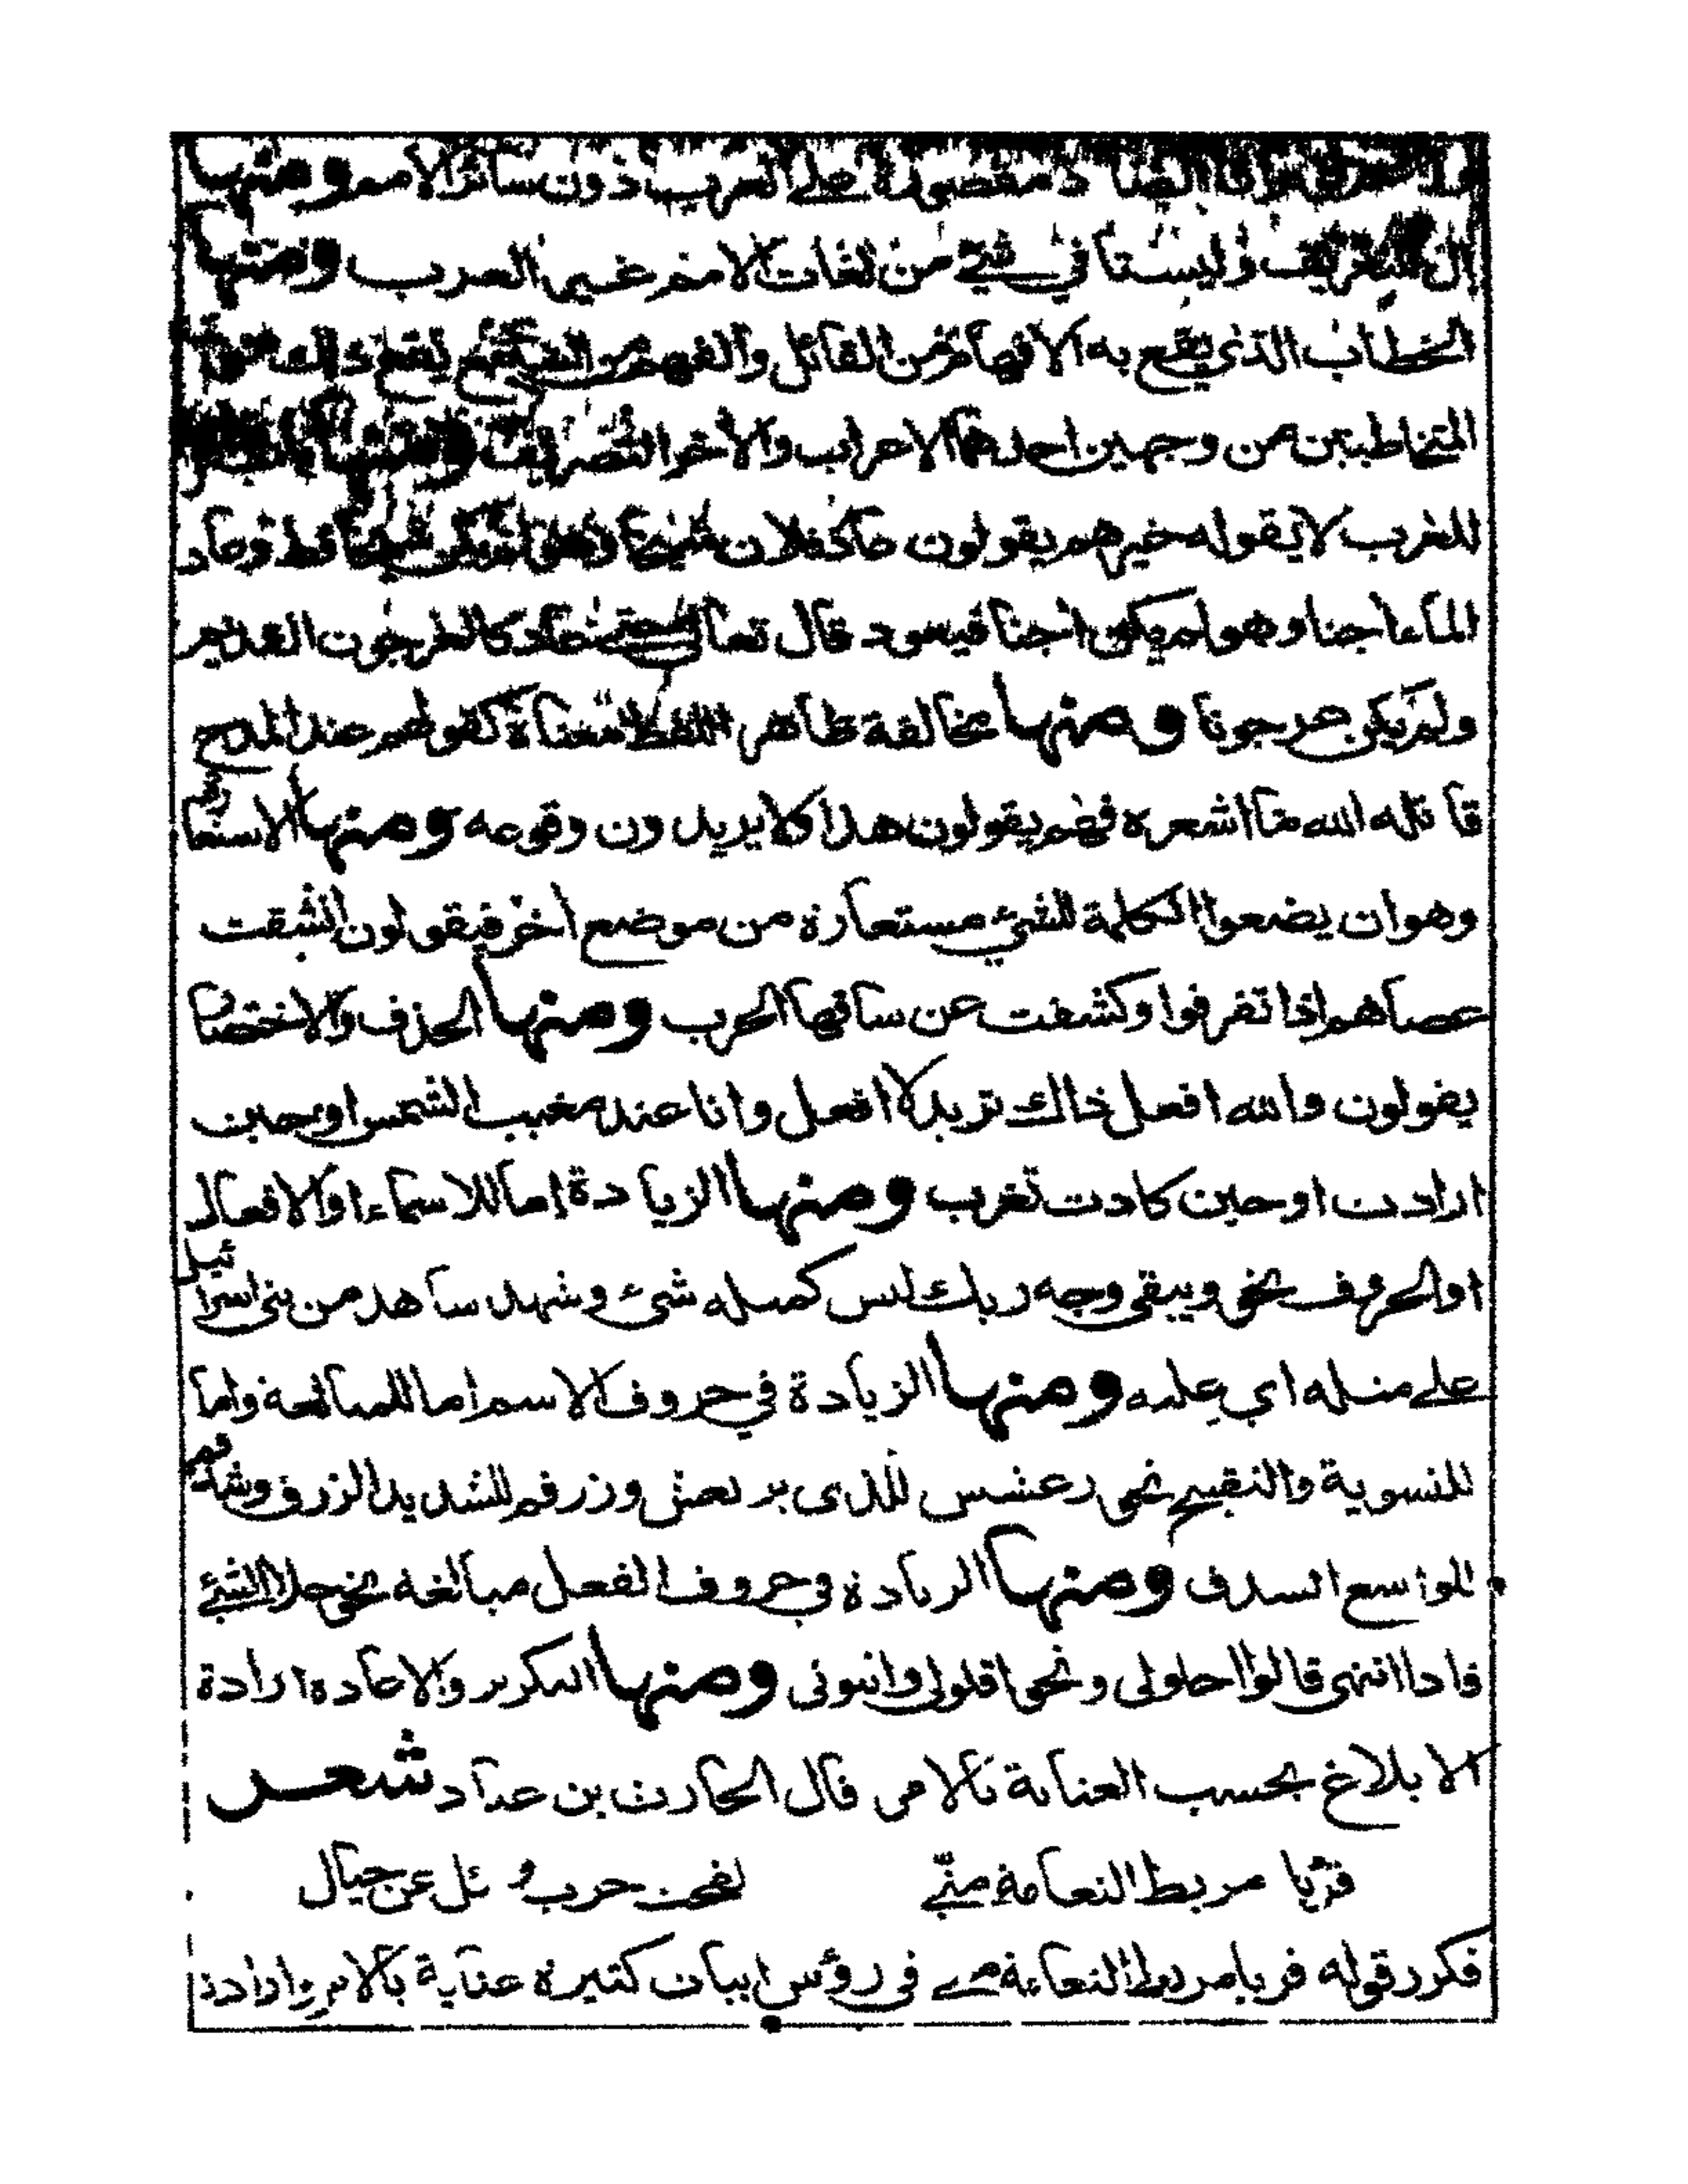 الضاد مقصورة على العرب دون سائر الامم ومنها
ال للتعريف وليستا في شيء من لغات الامم غير العرب ومنها
الخطاب الذي يقع به الافهام من القائل والفهم من يقع ذلك
المتخاطبين من وجهين احدهما الاعراب والاخر التصريف ومنها
للعرب لا يقوله غيرهم يقولون عاد فلان شيخا وهو لم يكن شيخا قط وعاد
الماء اجنا وهو لم يكن اجنا فيعود قال تعالى حتى عاد كالعرجون القديم
ولم يكن عرجونا ومنها مخالفة ظاهر اللفظ معناه كقولهم عند المدح
قاتله الله ما اشعره فهم يقولون هذا ولا يريدون وقوعه ومنها الاستعارة
وهو ان يضعوا الكلمة للشيء مستعارة من موضع اخر فيقولون انشقت
عصاهم اذا تفرقوا وكشفت عن ساقها الحرب ومنها الحذف والاختصار
يقولون والله افعل ذاك تريد لا افعل وانا عند مغيب الشمس او حين
ارادت او حين كادت تغرب ومنها الزيادة اما للاسماء او الافعال
او الحروف نحو ويبقى وجه ربك ليس كمثله شيء وشهد شاهد من بني اسرائيل
على مثله اي عليه ومنها الزيادة في حروف الاسم اما للمبالغة واما
للتسوية والتقبيح نحو رعشن للذي يرتعش وزرقم للشديد الزرق وشدقم
للواسع الشدق ومنها الزيادة في حروف الفعل مبالغة نحو حلا الشيء
فاذا انتهى قالوا احلولى ونحو اقلولى واثنونى ومنها التكرير والاعادة ارادة
الابلاغ بحسب العناية بالامر قال الحارث بن عباد شعر
قربا مربط النعامة مني لقحت حرب وئل عن حيال
فكرر قوله قربا مربط النعامة مني في رؤس ابيات كثيرة عناية بالامر وارادة